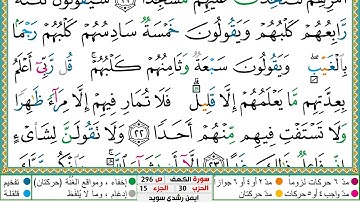 رَّابِعُهُمْ كَلْبُهُمْ وَيَقُولُونَ خَمْسَةٌ سَادِسُهُمْ كَلْبُهُمْ رَجْمًۢا
بِٱلْغَيْبِۖ وَيَقُولُونَ سَبْعَةٌ وَثَامِنُهُمْ كَلْبُهُمْۚ قُل رَّبِّىٓ أَعْلَمُ
بِعِدَّتِهِم مَّا يَعْلَمُهُمْ إِلَّا قَلِيلٌۗ فَلَا تُمَارِ فِيهِمْ إِلَّا مِرَآءً ظَٰهِرًا
وَلَا تَسْتَفْتِ فِيهِم مِّنْهُمْ أَحَدًا ٢٢ وَلَا تَقُولَنَّ لِشَا۟ىْءٍ
مدّ ٦ حركات لزوماً مدّ ٢ أو ٤ أو ٦ جوازاً سورة الكهف ص 296 إخفاء، ومواقع الغُنَّة (حركتان) تفخيم
مدّ واجب ٤ أو ٥ حركات مدّ حركتان الحزب 30 الجزء 15 إدغام، وما لا يُلفَظ قلقلة
أيمن رشدي سويد